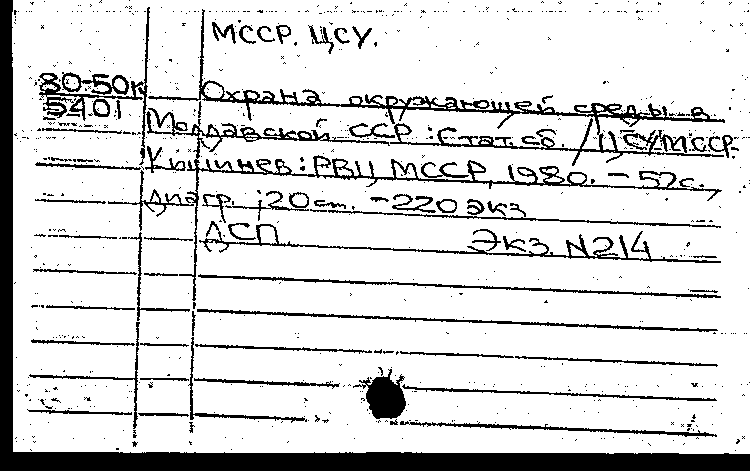 МССР. ЦСУ.
80-50к Охрана окружающей среды в
5401 Молдавской ССР : Стат. сб. / ЦСУ МССР.
Кишинев : РВЦ МССР, 1980. – 57с.,
диагр. ; 20 cm. – 220 экз.
ДСП. Экз. N214